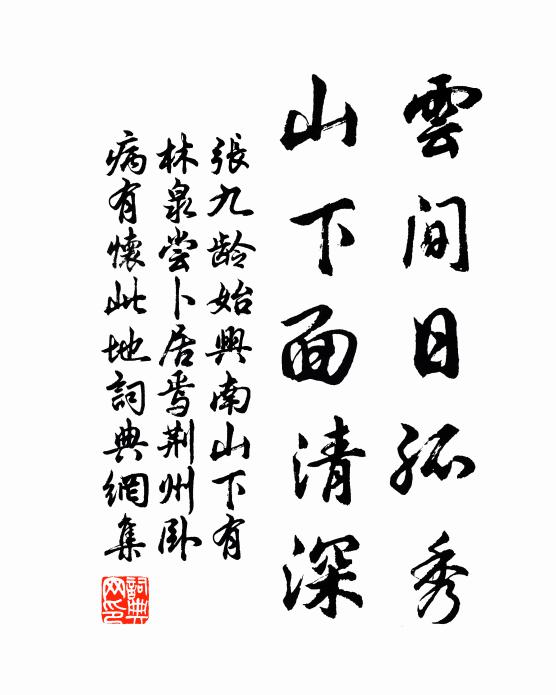 雲間日孤秀
山下面清深
張九齡始興南山下有
林泉嘗卜居焉荆州卧
病有懷此地詞典網集
詞典网印